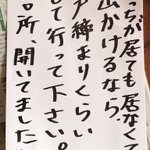 っちが居ても居なくて
出かけるなら、
戸締まりくらい
して行って下さい。
所、開いてました